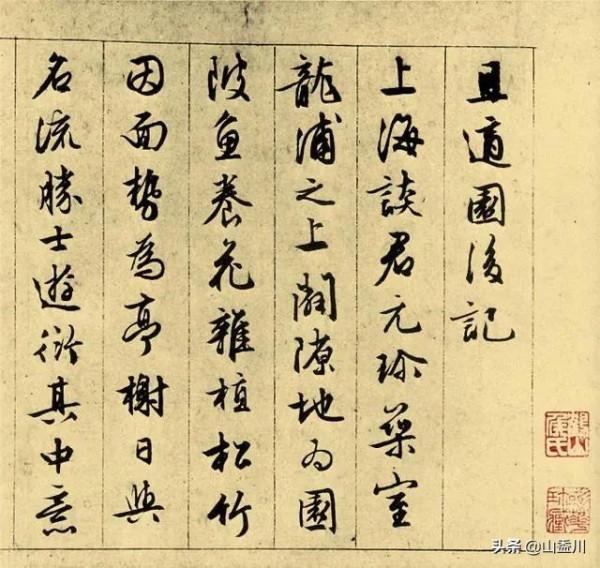 且適園後記
上海談君元珍築室
龍浦之上闢隙地為園
陂魚養花雜植松竹
因面勢為亭榭日與
名流勝士遊衍其中意
头条